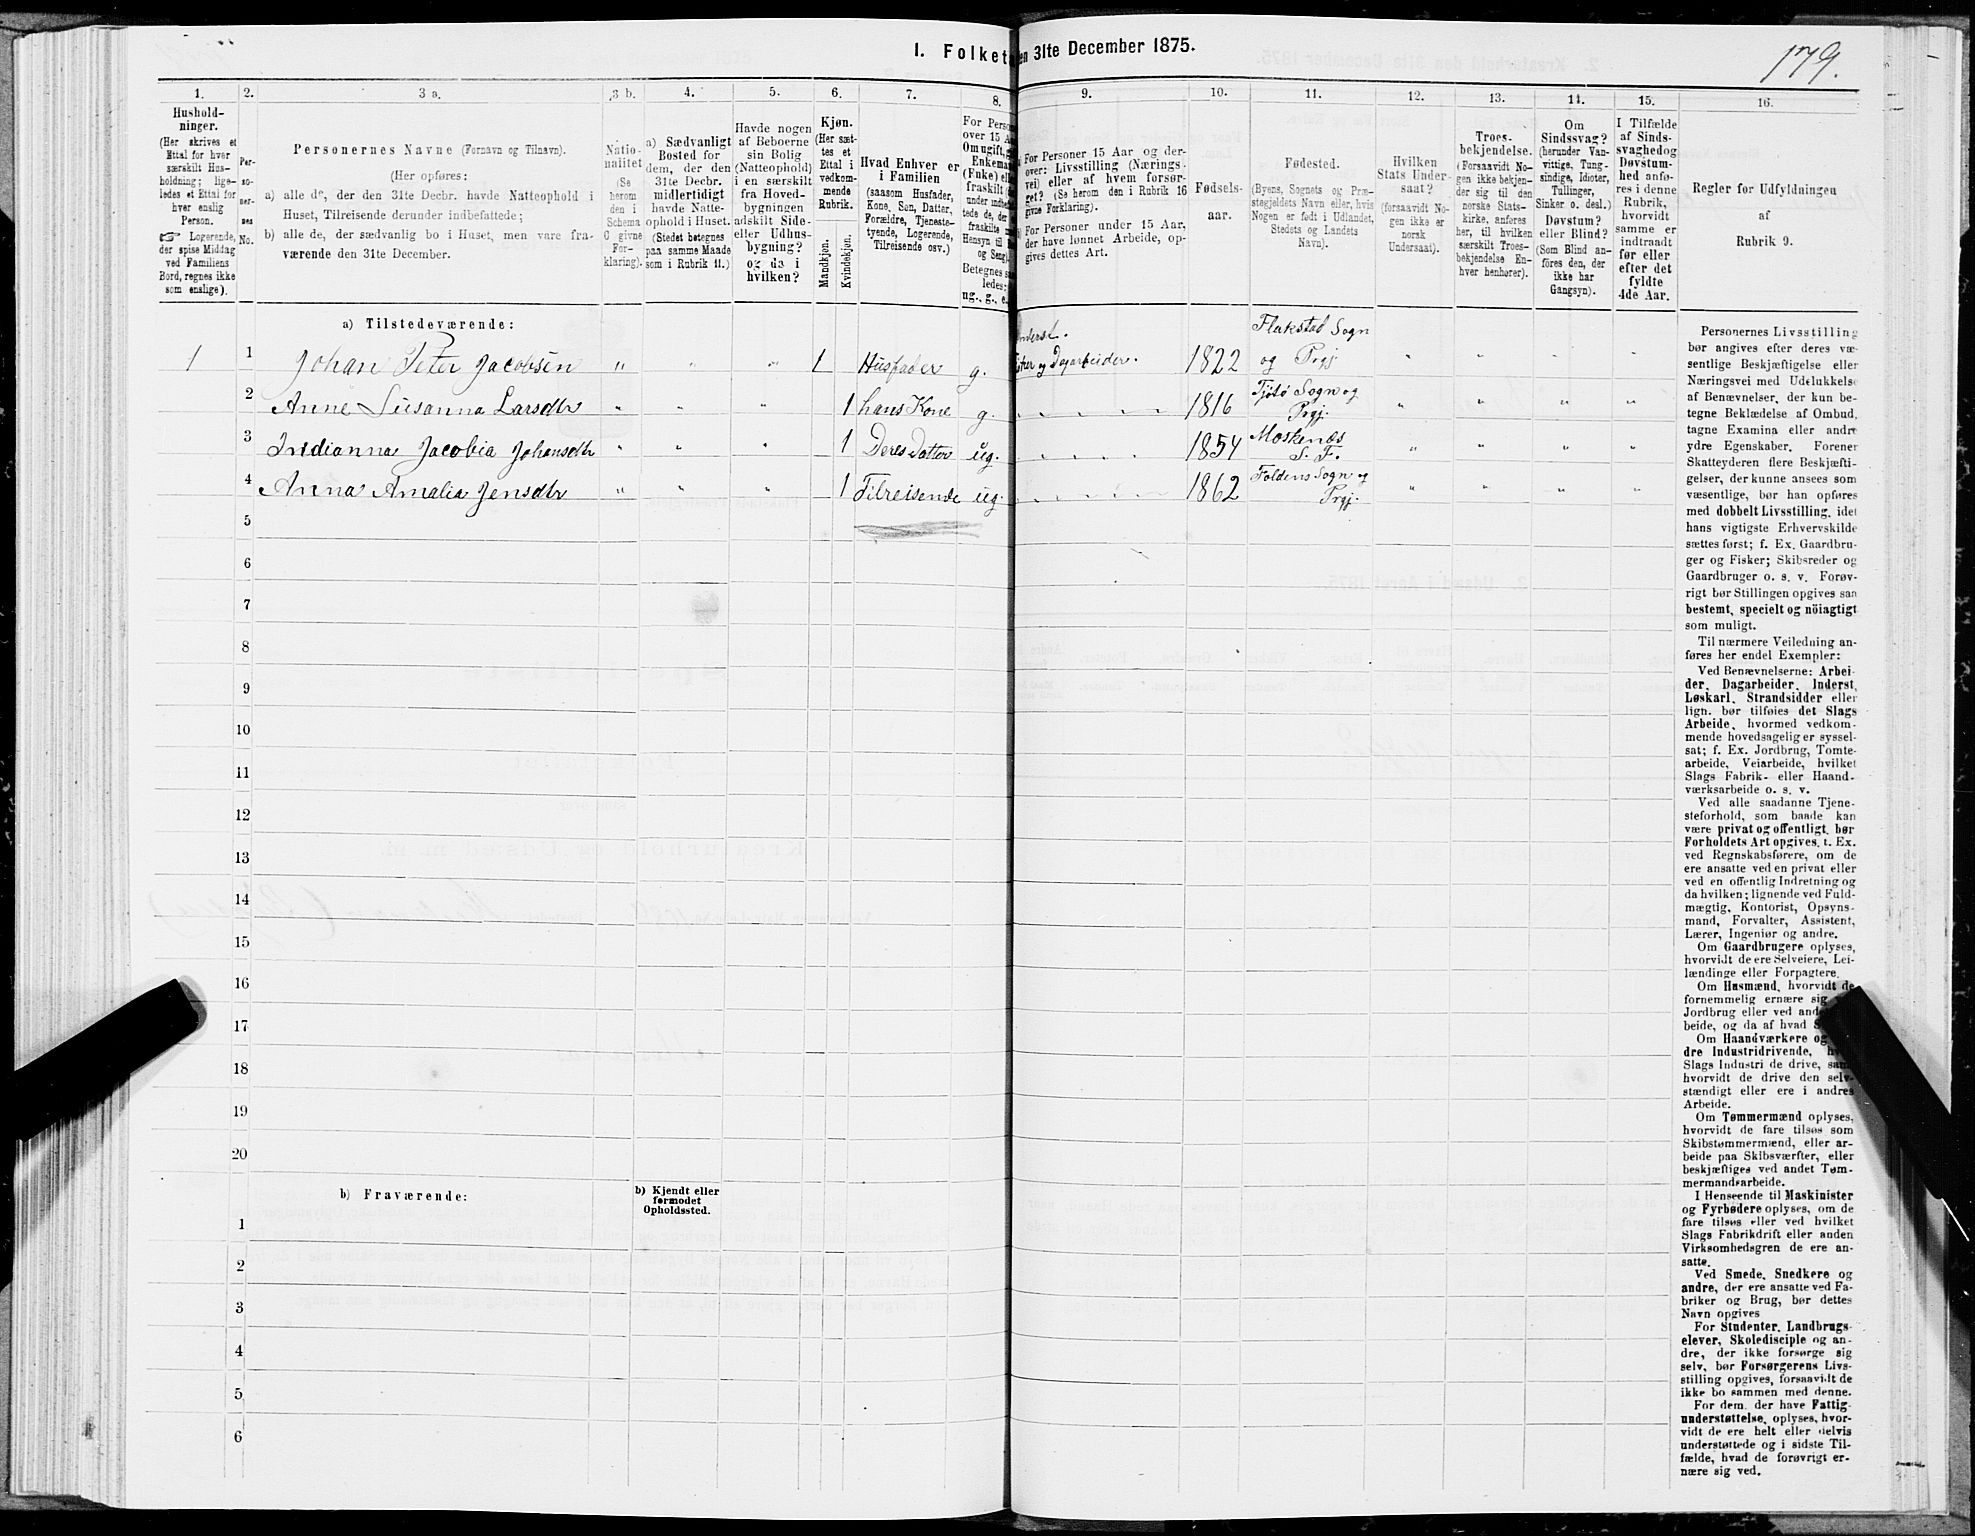 I. Folketa en 31te December 1875.
179.
1.
Hushold-
ninger.
(Her skrives et
Ettal for hver
særskilt Hus-
holdning; lige-
ledes et Ettal for
hver enslig
Person.
☞ Logerende,
der spise Middag
ved Familiens
Bord, regnes ikke
som enslige).
2.
Per-
so-
ner-
nes
No.
3 a.
Personernes Navne (Fornavn og Tilnavn).
(Her opføres:
a) alle de, der den 31te Decbr. havde Natteophold i
Huset, Tilreisende derunder indbefattede;
b) alle de, der sædvanlig bo i Huset, men vare fra-
værende den 31te December.
3 b.
Natio-
nalitet
(Se
herom
den i
Schema
6 givne
For-
klaring).
4.
a) Sædvanligt
Bosted for
dem, der den
31te Decbr.
midlertidigt
havde Natte-
ophold i Huset.
(Stedet betegnes
paa samme Maade
som i Rubrik 11.)
5.
Havde nogen
af Beboerne
sin Bolig
(Natteophold)
i en særskilt
fra Hoved-
bygningen
adskilt Side-
eller Udhus-
bygning?
og da i
hvilken?
6.
Kjøn.
(Her sæt-
tes et
Ettal i
vedkom-
mende
Rubrik.
Mandkjøn.
Kvindekjøn.
7.
Hvad Enhver er
i Familien
(saasom Husfader,
Kone, Søn, Datter,
Forældre, Tjeneste-
tyende, Logerende,
Tilreisende osv.)
8.
For Perso
over 15 A
Om ugift, g
Enkema
(Enke) ell
fraskilt (
under indb
tede de, der
fraskilte m
Hensyn til B
og Seng).
Betegnes sa
ledes:
ug., g., e.
9.
For Personer 15 Aar og der-
over: Livsstilling (Nærings-
vei) eller af hvem forsør-
get? (Se herom den i Rubrik 16
givne Forklaring).
For Personer under 15 Aar,
der have lønnet Arbeide, op-
gives dettes Art.
10.
Fødsels-
aar.
11.
Fødested.
(Byens, Sognets og Præ-
stegjeldets Navn, eller, hvis
Nogen er født i Udlandet,
Stedets og Landets
Navn).
12.
Hvilken
Stats Under-
saat?
(forsaavidt No-
gen ikke er
norsk
Undersaat).
13.
Troes-
bekjendelse.
(Forsaavidt No-
gen ikke bekjen-
der sig til den
norske Stats-
kirke, anføres
her, til hvilken
særskilt Troes-
bekjendelse En-
hver henhører).
14.
Om
Sindssvag?
(herunder Van-
vittige, Tung-
sindige, Idioter,
Tullinger,
Sinker o. desl.)
Døvstum?
eller Blind?
(Som Blind an-
føres den, der
ikke har
Gangsyn).
15.
I Tilfælde
af Sinds-
svaghed og
Døvstum-
hed anfø-
res i denne
Rubrik,
hvorvidt
samme er
indtraadt
før eller
efter det
fyldte
4de Aar.
16.
Regler for Udfyldningen
af
Rubrik 9.
a) Tilstedeværende:
1 1 Johan Peter Jacobsen " " " 1 Husfader g. Inderst. Fisker og Dagarbeider. 1822 Flakstad Sogn og Prgj " " " "
2 Anne Susanna Larsdtr " " " 1 hans Kone g. " " " " 1816 Tjötö Sogn og Prgj. " " " "
3 Indianna Jacobia Johansdtr " " " 1 Deres Datter ug. " " " " 1854 Moskenæs S. F. " " " "
4 Anna Amalia Jensdtr " " " 1 Tilreisende ug. " " " " 1862 Foldens Sogn og Prgj. " " " "
5
6
7
8
9
10
11
12
13
14
15
16
17
18
19
20
b) Fraværende:
b) Kjendt eller
formodet
Opholdssted.
1
2
3
4
5
6
Personernes Livsstilling
bør angives efter deres væ-
sentlige Beskjæftigelse eller
Næringsvei med Udelukkelse
af Benævnelser, der kun be-
tegne Beklædelse af Ombud,
tagne Examina eller andre
ydre Egenskaber. Forener
Skatteyderen flere Beskjæfti-
gelser, der kunne ansees som
væsentlige, bør han opføres
med dobbelt Livsstilling, idet
hans vigtigste Erhvervskilde
sættes først; f. Ex. Gaardbru-
ger og Fisker; Skibsreder og
Gaardbruger o. s. v. Forøv-
rigt bør Stillingen opgives saa
bestemt, specielt og nöiagtigt
som muligt.
Til nærmere Veiledning an-
føres her endel Exempler:
Ved Benævnelserne: Arbei-
der, Dagarbeider, Inderst,
Løskarl, Strandsidder eller
lign. bør tilføies det Slags
Arbeide, hvormed vedkom-
mende hovedsagelig er syssel-
sat; f. Ex. Jordbrug, Tomte-
arbeide, Veiarbeide, hvilket
Slags Fabrik- eller Haand-
værksarbeide o. s. v.
Ved alle saadanne Tjene-
steforhold, som baade kan
være privat og offentligt, bør
Forholdets Art opgives, t. Ex.
ved Regnskabsførere, om de
ere ansatte ved en privat eller
ved en offentlig Indretning og
da hvilken; lignende ved Fuld-
mægtig, Kontorist, Opsyns-
mand, Forvalter, Assistent,
Lærer, Ingeniør og andre.
Om Gaardbrugere oplyses,
hvorvidt de ere Selveiere, Lei-
lændinge eller Forpagtere.
Om Husmænd, hvorvidt de
fornemmelig ernære sig
Jordbrug eller ved and
beide, og da af hvad S
Om Haandværkere og
dre Industridrivende, h
Slags Industri de drive, sam
hvorvidt de drive den selv-
stændigt eller ere i andres
Arbeide.
Om Tømmermænd oplyses,
hvorvidt de fare tilsøs som
Skibstømmermænd, eller ar-
beide paa Skibsværfter, eller
beskjæftiges ved andet Tøm-
mermandsarbeide.
I Henseende til Maskinister
og Fyrbødere oplyses, om de
fare tilsøs eller ved hvilket
Slags Fabrikdrift eller anden
Virksomhedsgren de ere an-
satte.
Ved Smede, Snedkere og
andre, der ere ansatte ved Fa-
briker og Brug, bør dettes
Navn opgives
For Studenter, Landbrugs-
elever, Skoledisciple og an-
dre, der ikke forsørge sig
selv, bør Forsørgerens Livs-
stilling opgives, forsaavidt de
ikke bo sammen med denne.
For dem, der have Fattig-
understøttelse, oplyses, hvor-
vidt de ere helt eller delvis
understøttede og i sidste Til-
fælde, hvad de forøvrigt er-
nære sig ved.